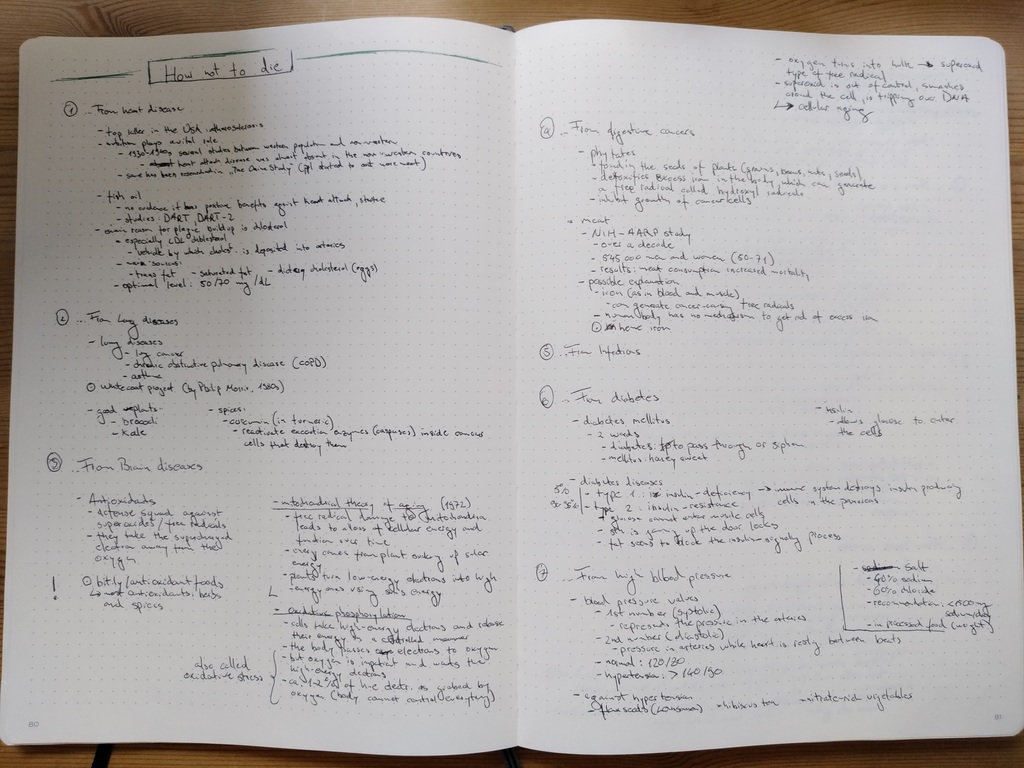 How not to die
1 ...From heart disease
- top killer in the USA: atherosclerosis
- nutrition plays a vital role
- 1930-1940s several studies between western population and non-western
- heart attack disease was almost absent in the non-western countries
- same has been researched in "The China Study" (ppl started to eat more meat)
- fish oil
- no evidence it has positive benefits against heart attack, stroke
- studies: DART, DART-2
- main reason for plaque buildup is cholesterol
- especially LDL cholesterol
- vehicle by which cholest. is deposited into arteries
- main sources:
- trans fat - saturated fat - dietary cholesterol (eggs)
- optimal level: 50/70 mg/dL
2 ...From Lung diseases
- lung diseases
- lung cancer
- chronic obstructive pulmonary disease (COPD)
- asthma
Whitecoat project (by Philip Morris, 1980s)
- good plants
- broccoli
- Kale
- spices:
- curcumin (in turmeric)
- reactivate execution enzymes (caspases) inside cancer
cells that destroy them
3 ...From Brain diseases
- Antioxidants
- defense squad against
superoxides/free radicals
- they take the supercharged
electron away from the
oxygen
! bit.ly/antioxidantfoods
most antioxidants: herbs
and spices
- mitochondrial theory of aging (1972)
- free radical damage to mitochondria
leads to a loss of cellular energy and
function over time
- energy comes from plant making of solar
energy
- plants turn low-energy electrons into high
energy ones using sun's energy
- oxidative phosphorylation
- cells take high-energy electrons and release
their energy in a controlled manner
- the body passes electrons to oxygen
- but oxygen is impatient and wants the
high-energy electrons
- ca. 1-2% of h-e electr. is grabbed by
oxygen (body cannot control everything)
also called
oxidative stress
80
- oxygen turns into bulk → superoxid
type of free radical
- superoxid is out of control, smashes
around the cell, is tripping over DNA
↳ cellular aging
4 ...From digestive cancers
- phytates
- found in the seeds of plants (grains, beans, nuts, seeds)
- detoxifies excess iron in the body which can generate
a free radical called hydroxyl radicals
- inhibit growth of cancer cells
- meat
- NIH-AARP study
- over a decade
- 545.000 men and women (50-71)
- results: meat consumption increased mortality
- possible explanation
- iron (as in blood and muscle)
- can generate cancer-causing free radicals
- human body has no mechanism to get rid of excess iron
heme iron
5 ...From Infections
6 ...From diabetes
- diabetes mellitus
- 2 words
- diabetes: to pass through or siphon
- mellitus: honey sweet
- insulin
- allows glucose to enter
the cells
- diabetes diseases
5% - type 1: insulin-deficiency → immune system destroys insulin producing
cells in the pancreas
90-95% - type 2: insulin-resistance
- glucose cannot enter muscle cells
- sth is gumming up the door locks
- fat seems to block the insulin-signaling process
7 ...From high blood pressure
- blood pressure values
- 1st number (systolic)
- represents the pressure in the arteries
- 2nd number (diastolic)
- pressure in arteries while heart is resting between beats
- normal: 120/80
- hypertension: > 140/90
- salt
- 40% sodium
- 60% chloride
- recommendation: <1500mg
sodium/day
- in processed food (weight)
- against hypertension
- flaxseeds (Leinsamen) - hibiscus tea - nitrate-rich vegetables
81